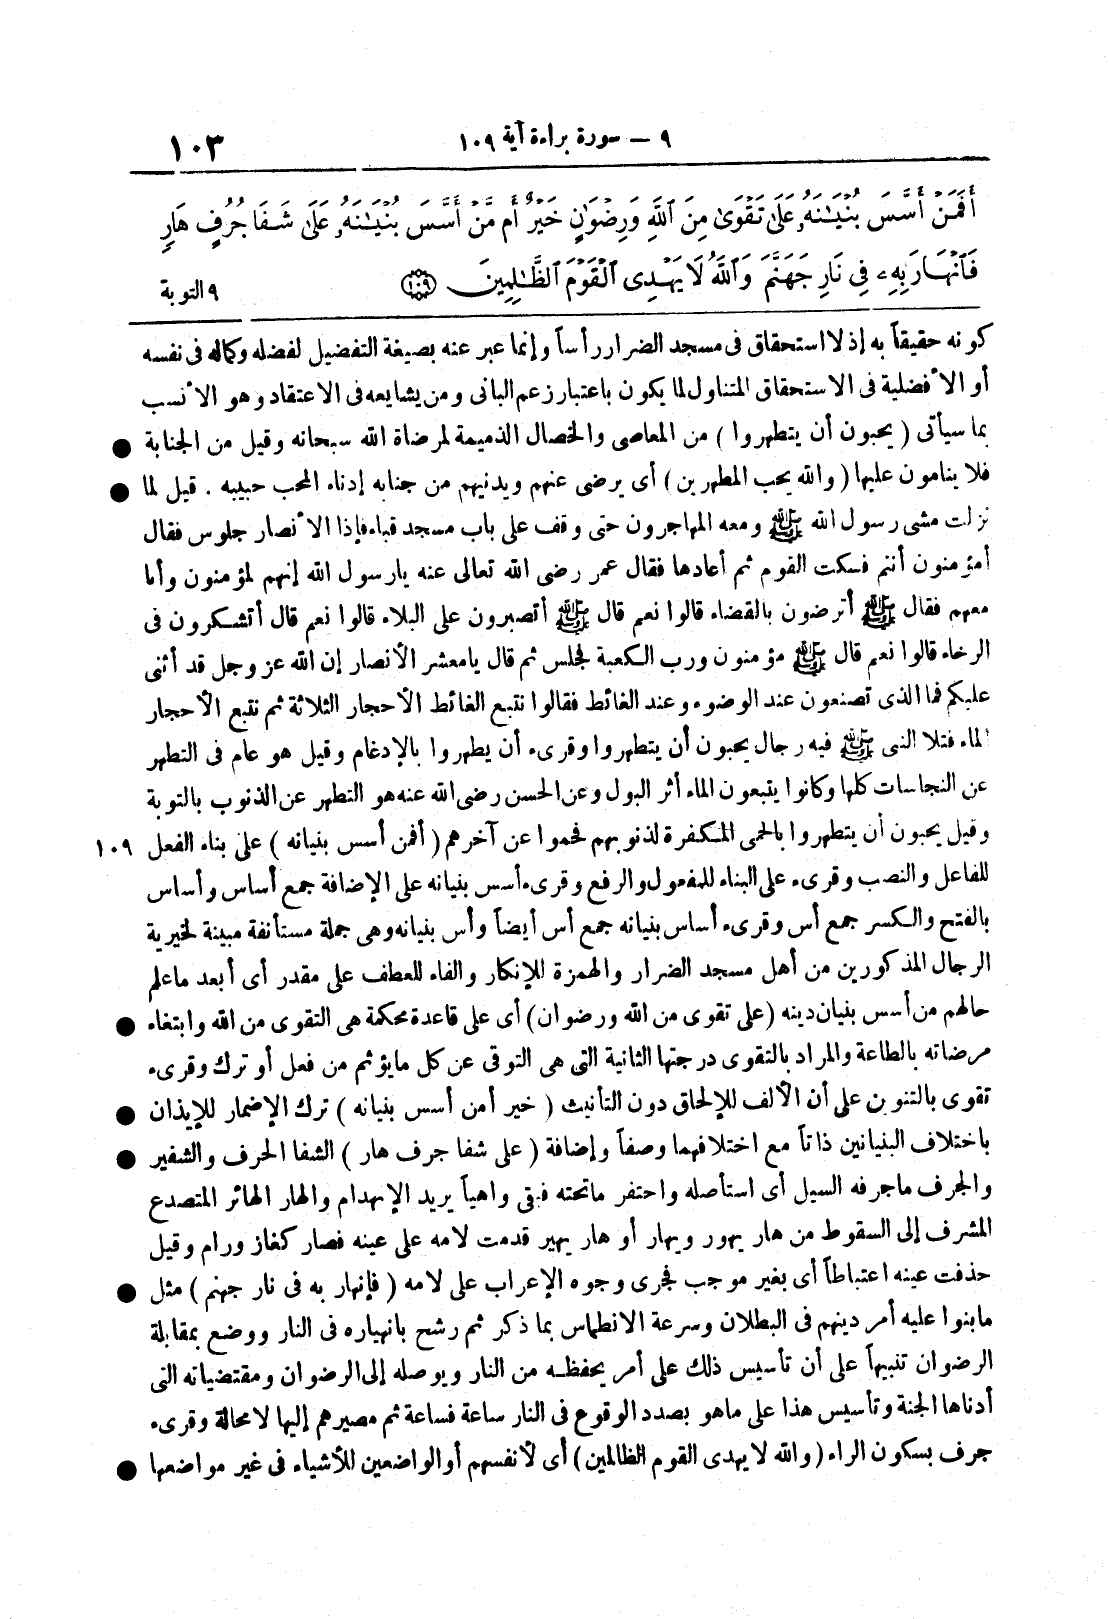 ٩ – سورة براءة آية ١٠٩
١٠٣
أَفَمَنْ أَسَّسَ بُنْيَـٰنَهُۥ عَلَىٰ تَقْوَىٰ مِنَ ٱللَّهِ وَرِضْوَٰنٍ خَيْرٌ أَم مَّنْ أَسَّسَ بُنْيَـٰنَهُۥ عَلَىٰ شَفَا جُرُفٍ هَارٍ
فَٱنْهَارَ بِهِۦ فِى نَارِ جَهَنَّمَ وَٱللَّهُ لَا يَهْدِى ٱلْقَوْمَ ٱلظَّـٰلِمِينَ ١٠٩
٩ التوبة
كونه حقيقاً به إذ لا استحقاق فى مسجد الضرار رأساً وإنما عبر عنه بصيغة التفضيل لفضله وكماله فى نفسه
أو الأفضلية فى الاستحقاق المتناول لما يكون باعتبار زعم البانى ومن يشايعه فى الاعتقاد وهو الأنسب
بما سيأتى ( يحبون أن يتطهروا ) من المعاصى والخصال الذميمة لمرضاة الله سبحانه وقيل من الجنابة ●
فلا ينامون عليها ( والله يحب المطهرين ) أى يرضى عنهم ويدنيهم من جنابه إدناء المحب حبيبه . قيل لما ●
نزلت مشى رسول الله ﷺ ومعه المهاجرون حتى وقف على باب مسجد قباء فإذا الأنصار جلوس فقال
أمؤمنون أنتم فسكت القوم ثم أعادها فقال عمر رضى الله تعالى عنه يارسول الله إنهم لمؤمنون وأنا
معهم فقال ﷺ أترضون بالقضاء قالوا نعم قال ﷺ أتصبرون على البلاء قالوا نعم قال أتشكرون فى
الرخاء قالوا نعم قال ﷺ مؤمنون ورب الكعبة فجلس ثم قال يامعشر الأنصار إن الله عز وجل قد أثنى
عليكم فما الذى تصنعون عند الوضوء وعند الغائط فقالوا نتبع الغائط الأحجار الثلاثة ثم نتبع الأحجار
الماء فتلا النبى ﷺ فيه رجال يحبون أن يتطهروا وقرىء أن يطهروا بالإدغام وقيل هو عام فى التطهر
عن النجاسات كلها وكانوا يتبعون الماء أثر البول وعن الحسن رضى الله عنه هو التطهر عن الذنوب بالتوبة
وقيل يحبون أن يتطهروا بالحمى المكفرة لذنوبهم فحموا عن آخرهم ( أفمن أسس بنيانه ) على بناء الفعل ١٠٩
للفاعل والنصب وقرىء على البناء للمفعول والرفع وقرىء أسس بنيانه على الإضافة جمع أساس وأساس
بالفتح والكسر جمع أس وقرىء أساس بنيانه جمع أس أيضاً وأس بنيانه وهى جملة مستأنفة مبينة لخيرية
الرجال المذكورين من أهل مسجد الضرار والهمزة للإنكار والفاء للعطف على مقدر أى أبعد ماعلم
حالهم من أسس بنيان دينه (على تقوى من الله ورضوان) أى على قاعدة محكمة هى التقوى من الله وابتغاء ●
مرضاته بالطاعة والمراد بالتقوى درجتها الثانية التى هى التوقى عن كل مايؤثم من فعل أو ترك وقرىء
تقوى بالتنوين على أن الألف للإلحاق دون التأنيث ( خير أمن أسس بنيانه ) ترك الإضمار للإيذان ●
باختلاف البنيانين ذاتاً مع اختلافهما وصفاً وإضافة ( على شفا جرف هار ) الشفا الحرف والشفير ●
والجرف ماجرفه السيل أى استأصله واحتفر ماتحته فبقى واهياً يريد الإنهدام والهار الهائر المتصدع
المشرف إلى السقوط من هار يهور ويهار أو هار يهير قدمت لامه على عينه فصار كغاز ورام وقيل
حذفت عينه اعتباطاً أى بغير موجب فجرى وجوه الإعراب على لامه ( فإنهار به فى نار جهنم ) مثل ●
مابنوا عليه أمر دينهم فى البطلان وسرعة الانطماس بما ذكر ثم رشح بانهياره فى النار ووضع بمقابلة
الرضوان تنبيهاً على أن تأسيس ذلك على أمر يحفظه من النار ويوصله إلى الرضوان ومقتضياته التى
أدناها الجنة وتأسيس هذا على ماهو بصدد الوقوع فى النار ساعة فساعة ثم مصيرهم إليها لا محالة وقرىء
جرف بسكون الراء ( والله لا يهدى القوم الظالمين ) أى لأنفسهم أو الواضعين للأشياء فى غير مواضعها ●